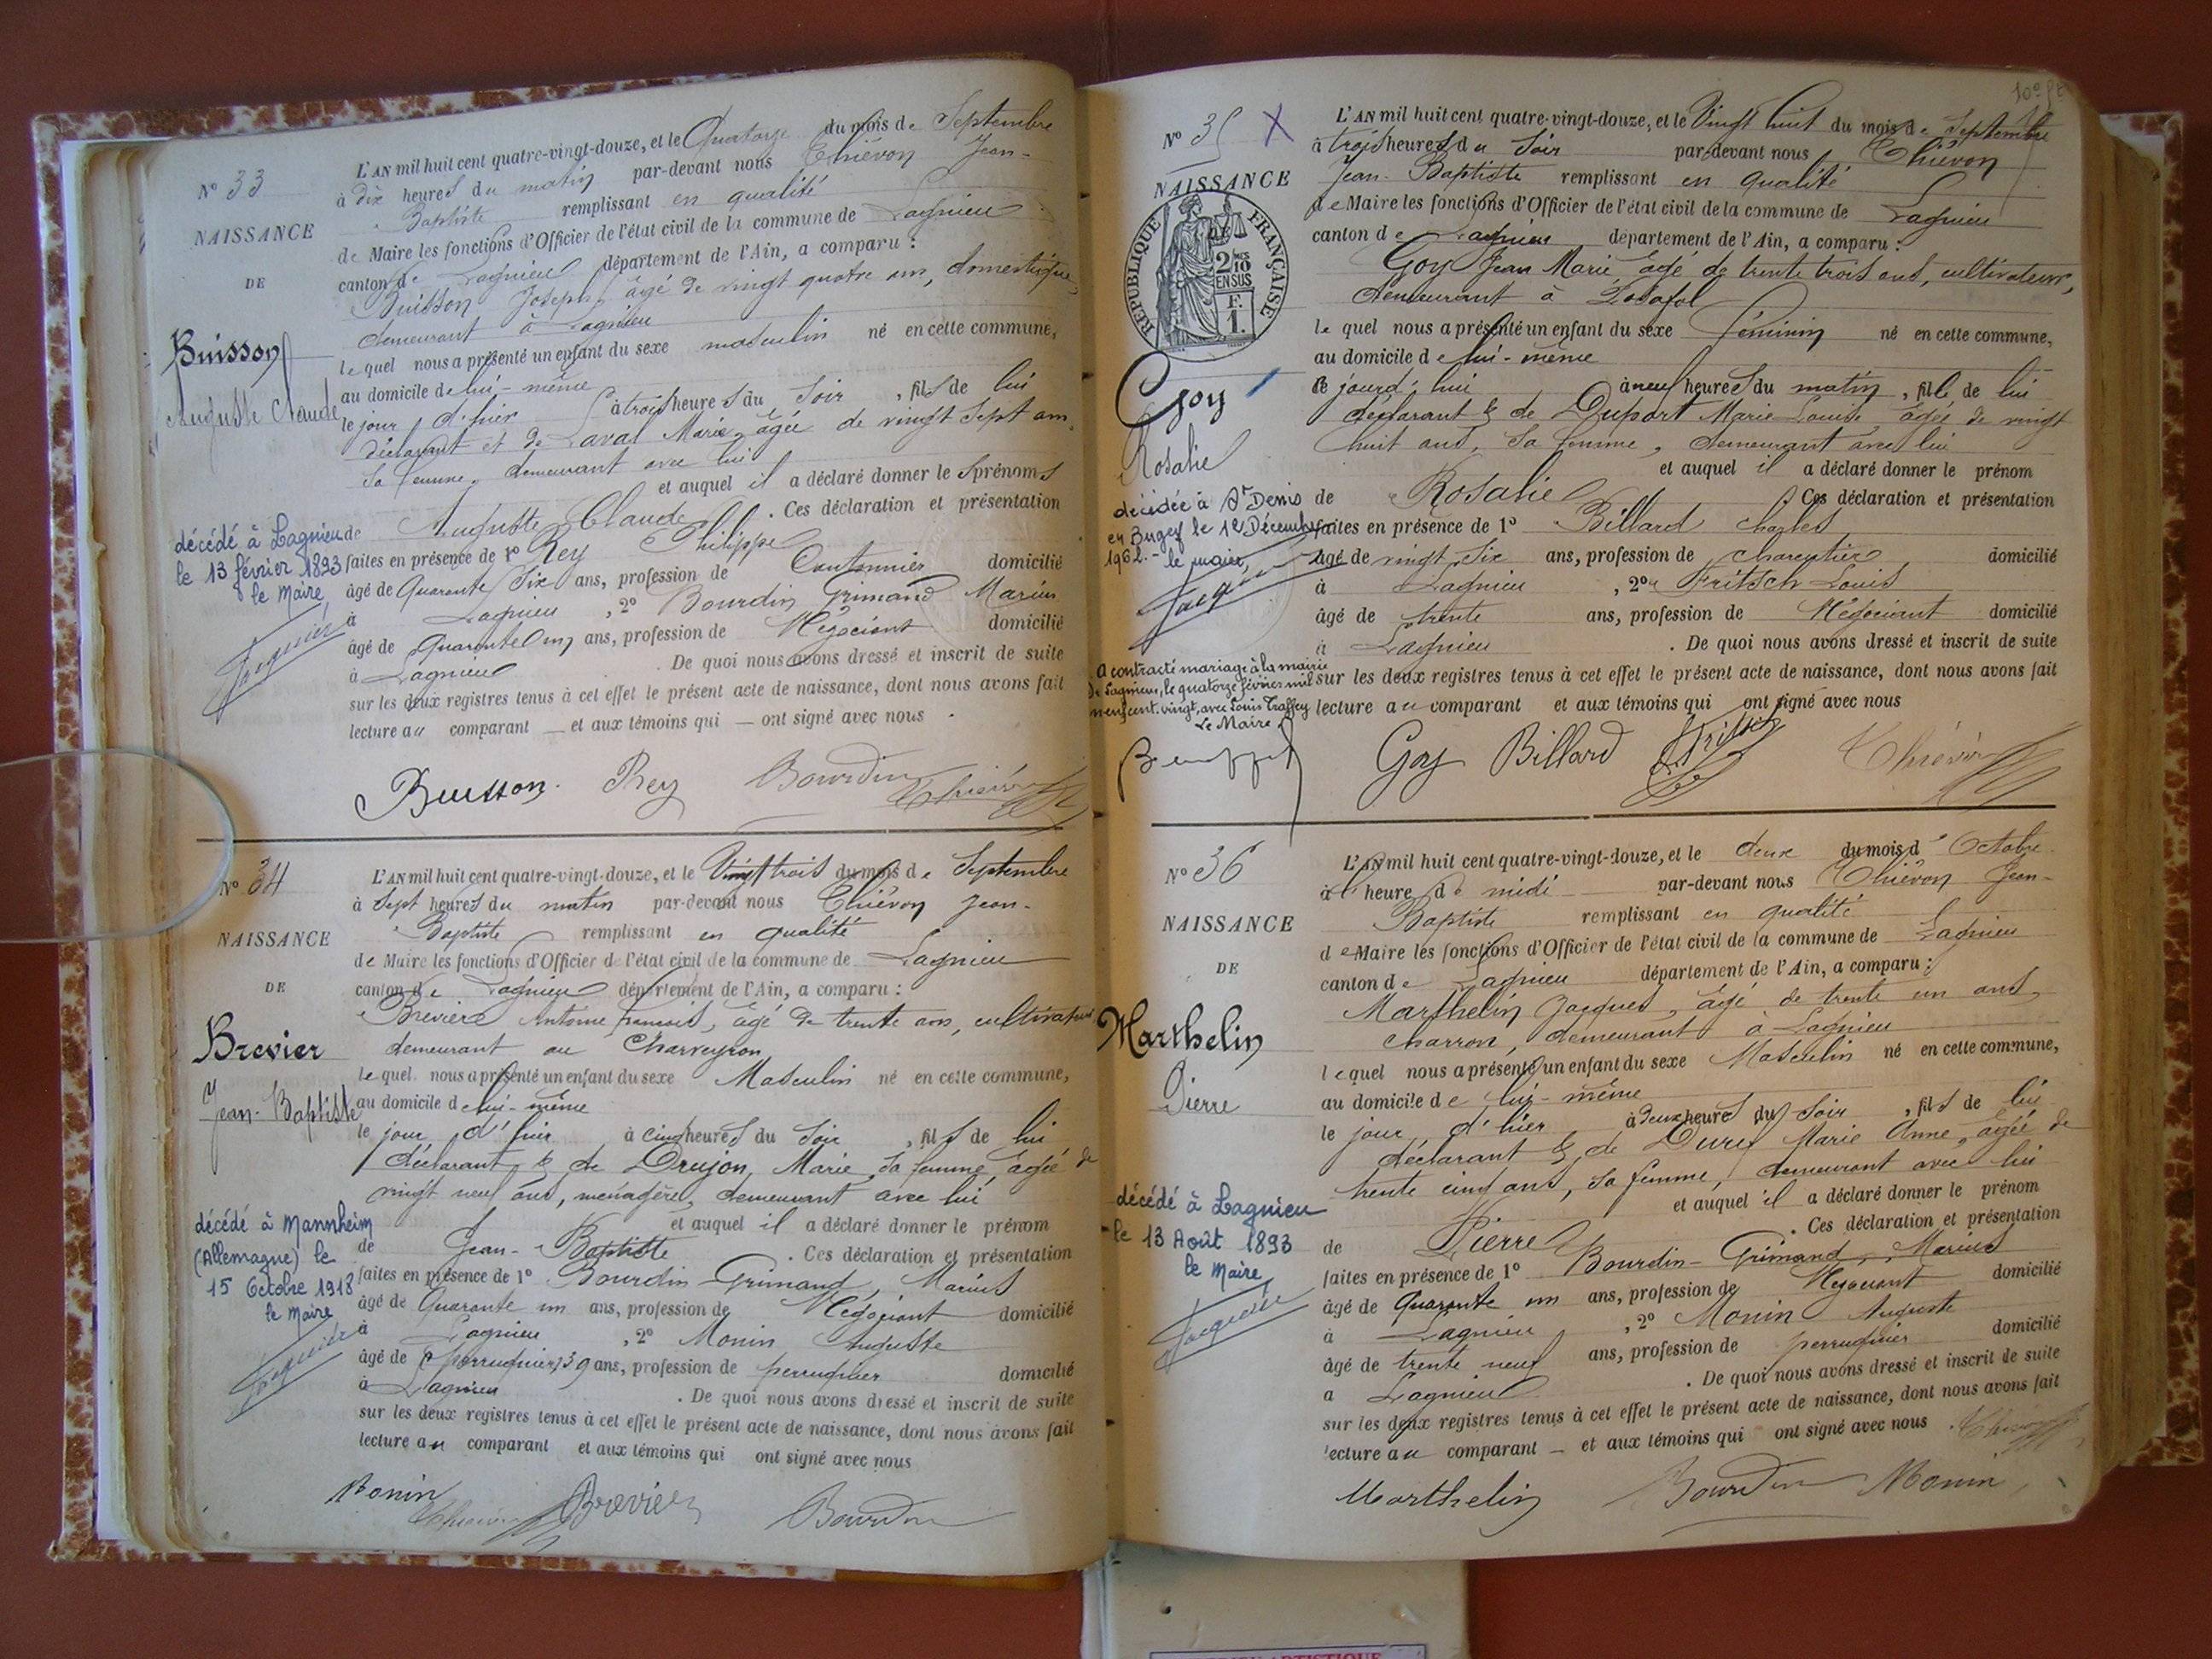 N° 33
NAISSANCE
DE
Buisson
Auguste Claude
décédé à Lagnieu
le 13 février 1893
le Maire
L'AN mil huit cent quatre-vingt-douze, et le Quatorze du mois de Septembre
à dix heures du matin par-devant nous Thiévon Jean-
Baptiste remplissant en qualité
de Maire les fonctions d'Officier de l'état civil de la commune de Lagnieu
canton de Lagnieu département de l'Ain, a comparu :
Buisson Joseph, âgé de vingt quatre ans, domestique,
demeurant à Lagnieu
lequel nous a présenté un enfant du sexe masculin né en cette commune,
au domicile de lui-même
le jour d'hier à trois heures du soir, fils de lui
déclarant et de Laval Marie, âgée de vingt sept ans,
sa femme, demeurant avec lui
et auquel il a déclaré donner les prénoms
de Auguste Claude. Ces déclaration et présentation
faites en présence de 1° Rey Philippe
âgé de Quarante six ans, profession de Cantonnier domicilié
à Lagnieu, 2° Bourdin Grimand Marius
âgé de quarante un ans, profession de Négociant domicilié
à Lagnieu. De quoi nous avons dressé et inscrit de suite
sur les deux registres tenus à cet effet le présent acte de naissance, dont nous avons fait
lecture au comparant — et aux témoins qui — ont signé avec nous.
Buisson. Rey Bourdin Thiévon
N° 34
NAISSANCE
DE
Brevier
Jean-Baptiste
décédé à Mannheim
(Allemagne) le
15 Octobre 1918
le Maire
L'AN mil huit cent quatre-vingt-douze, et le Vingt trois du mois de Septembre
à sept heures du matin par-devant nous Thiévon Jean-
Baptiste remplissant en qualité
de Maire les fonctions d'Officier de l'état civil de la commune de Lagnieu
canton de Lagnieu département de l'Ain, a comparu :
Brevier Antoine François, âgé de trente ans, cultivateur
demeurant au Charveyron
lequel nous a présenté un enfant du sexe Masculin né en cette commune,
au domicile de lui-même
le jour d'hier à cinq heures du soir, fils de lui
déclarant & de Drujon, Marie sa femme, âgée de
vingt neuf ans, ménagère, demeurant avec lui
et auquel il a déclaré donner le prénom
de Jean-Baptiste. Ces déclaration et présentation
faites en présence de 1° Bourdin Grimand, Marius
âgé de Quarante un ans, profession de Négociant domicilié
à Lagnieu, 2° Monin Auguste
âgé de (perruquier) 39 ans, profession de perruquier domicilié
à Lagnieu. De quoi nous avons dressé et inscrit de suite
sur les deux registres tenus à cet effet le présent acte de naissance, dont nous avons fait
lecture au comparant et aux témoins qui ont signé avec nous
Monin Thiévon Brevier Bourdin
N° 35 X
NAISSANCE
RÉPUBLIQUE FRANÇAISE
2/10
EN SUS
F.
1.
Goy
Rosalie
décédée à St Denis
en Bugey le 12 Décembre
1962.- le maire,
a contracté mariage à la mairie
de Lagnieu, le quatorze février mil
neuf cent vingt, avec Louis Traffey
Le Maire
L'AN mil huit cent quatre-vingt-douze, et le Vingt huit du mois de Septembre
à trois heures du soir par-devant nous Thiévon
Jean-Baptiste remplissant en qualité
de Maire les fonctions d'Officier de l'état civil de la commune de Lagnieu
canton de Lagnieu département de l'Ain, a comparu :
Goy Jean Marie, âgé de trente trois ans, cultivateur,
demeurant à Posafol
lequel nous a présenté un enfant du sexe féminin né en cette commune,
au domicile de lui-même
ce jourd'hui à neuf heures du matin, fille de lui
déclarant & de Duport Marie Louise, âgée de vingt
huit ans, sa femme, demeurant avec lui
et auquel il a déclaré donner le prénom
de Rosalie. Ces déclaration et présentation
faites en présence de 1° Billard Charles
âgé de vingt six ans, profession de charpentier domicilié
à Lagnieu, 2° Fritsch Louis
âgé de trente ans, profession de Négociant domicilié
à Lagnieu. De quoi nous avons dressé et inscrit de suite
sur les deux registres tenus à cet effet le présent acte de naissance, dont nous avons fait
lecture au comparant et aux témoins qui ont signé avec nous
Goy Billard Fritsch Thiévon
N° 36
NAISSANCE
DE
Marthelin
Pierre
décédé à Lagnieu
le 13 Août 1893
le Maire
L'AN mil huit cent quatre-vingt-douze, et le deux du mois d'Octobre
à l'heure de midi par-devant nous Thiévon Jean-
Baptiste remplissant en qualité
de Maire les fonctions d'Officier de l'état civil de la commune de Lagnieu
canton de Lagnieu département de l'Ain, a comparu :
Marthelin Jacques, âgé de trente un ans,
charron, demeurant à Lagnieu
lequel nous a présenté un enfant du sexe Masculin né en cette commune,
au domicile de lui-même
le jour d'hier à deux heures du soir, fils de lui
déclarant & de Durey Marie Anne, âgée de
trente cinq ans, sa femme, demeurant avec lui
et auquel il a déclaré donner le prénom
de Pierre. Ces déclaration et présentation
faites en présence de 1° Bourdin-Grimand, Marius
âgé de Quarante un ans, profession de Négociant domicilié
à Lagnieu, 2° Monin Auguste
âgé de trente neuf ans, profession de perruquier domicilié
a Lagnieu. De quoi nous avons dressé et inscrit de suite
sur les deux registres tenus à cet effet le présent acte de naissance, dont nous avons fait
lecture au comparant — et aux témoins qui ont signé avec nous. Thiévon
Marthelin Bourdin Monin